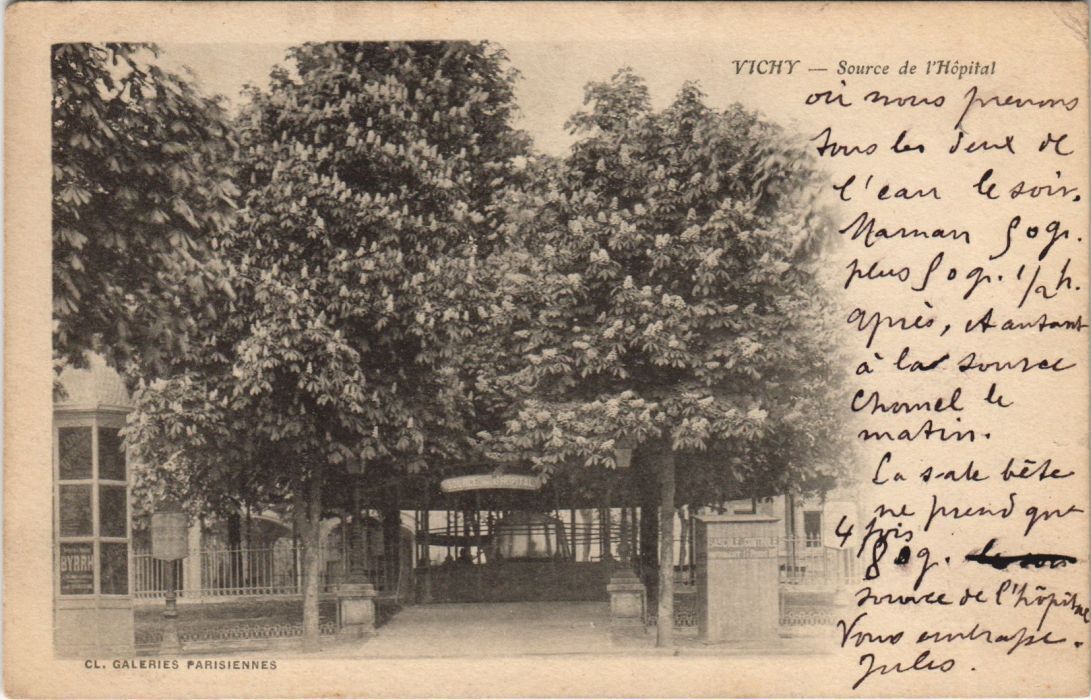 VICHY — Source de l'Hôpital
où nous prenons
tous les deux de
l'eau le soir.
Maman 50gr.
plus 50gr. 1/2 h.
après, et autant
à la source
Chomel le
matin.
La sale bête
ne prend que
4 fois
80g.
source de l'hôpital
Vous embrasse.
Jules.
BYRRH
CL. GALERIES PARISIENNES